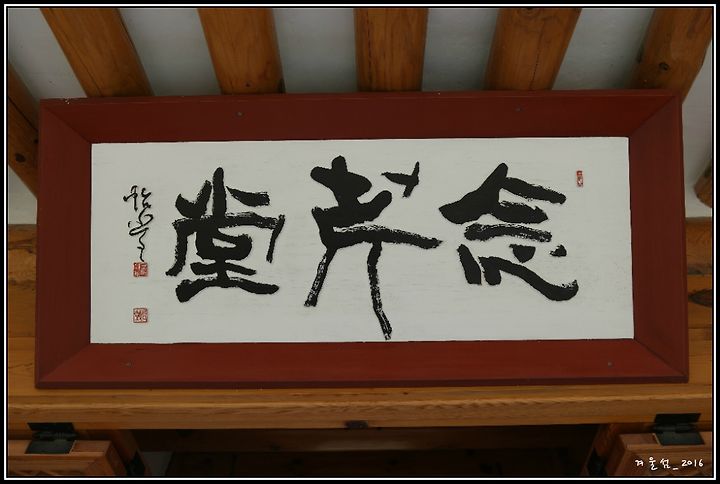 念芹堂
겨울섬_2016